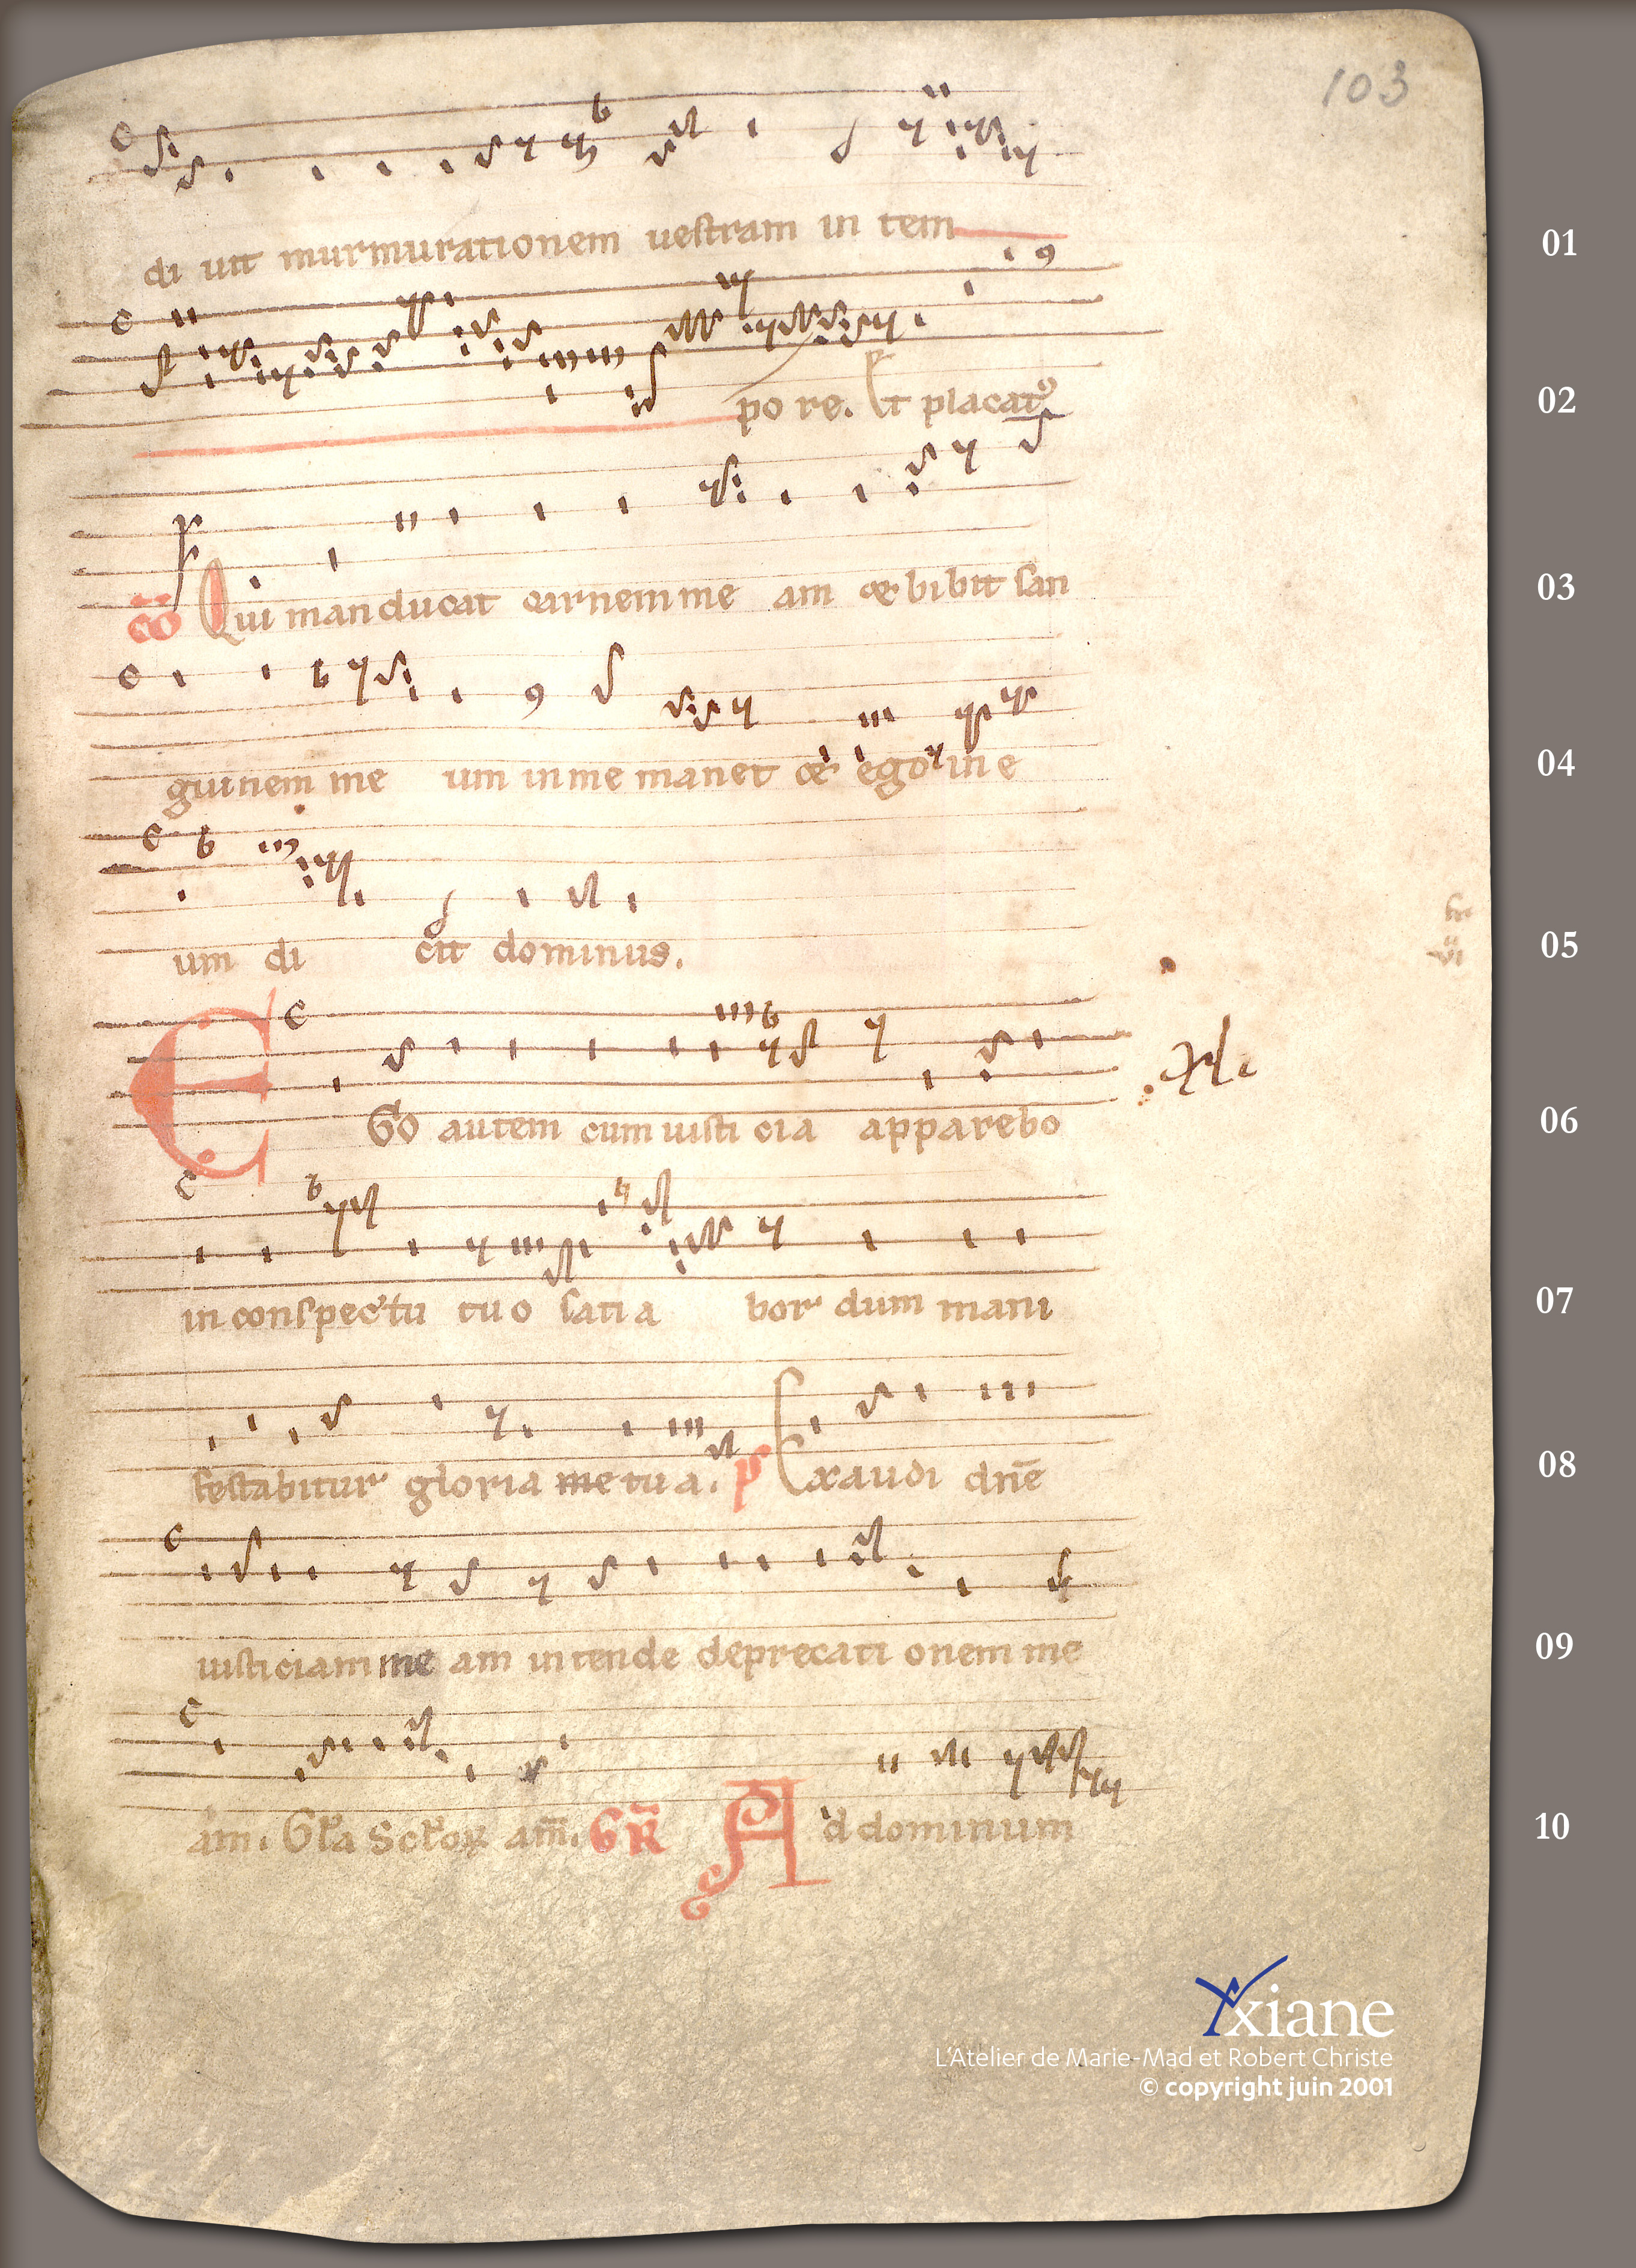 103
di uit murmurationem uestram in tem
01
po re. Et placat᷒
02
c̄o Qui manducat carnem me am & bibit san
03
guinem me um in me manet & ego in e
04
um di cit dominus.
05
EGo autem cum iusti cia apparebo
06
in conspectu tu o sati a bor dum mani
07
festabitur gloria me tu a. p̄ Exaudi dn̄e
08
iusticiam me am intende deprecati onem me
09
am. Gl̓a Scl̓oꝝ am̄. GR̄ Ad dominum
10
Yxiane
L'Atelier de Marie-Mad et Robert Christe
© copyright juin 2001